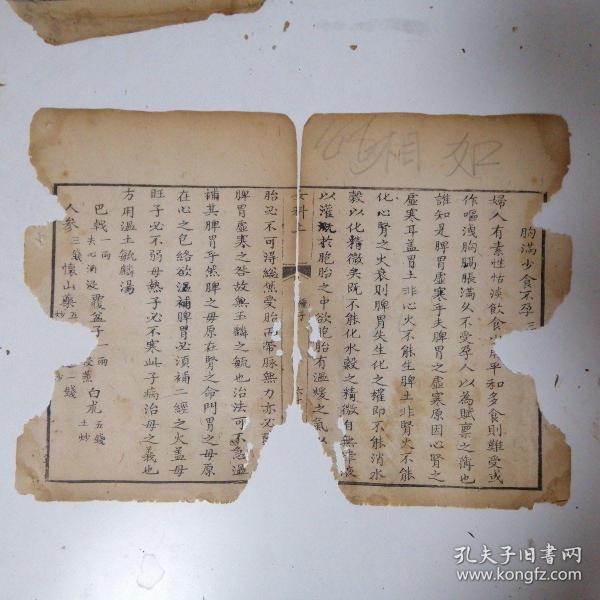 如相
胸滿少食不孕三
婦人有素性恬淡飲食少 平和多食則難受或
作嘔洩胸膈脹滿久不受孕人以為賦禀之薄也
誰知是脾胃虛寒乎夫脾胃之虛寒原因心腎之
虛寒耳蓋胃土非心火不能生脾土非腎火不能
化心腎之火衰則脾胃失生化之權即不能消水
穀以化精微矣既不能化水穀之精微自無津液
以灌溉於胞胎之中欲胞胎有溫煖之氣以
女科上
種子
胎必不可得縱然受胎而帶脉無力亦必
脾胃虛寒之咎故無玉麟之毓也治法可不急溫
補其脾胃乎然脾之母原在腎之命門胃之母原
在心之包絡欲溫補脾胃必須補二經之火蓋母
旺子必不弱母熱子必不寒此子病治母之義也
方用溫土毓麟湯
巴戟一兩 去心酒浸 覆盆子一兩 白朮五錢 土炒
人參三錢 懷山藥五 炒 二錢
孔夫子旧书网
www.kongfz.com